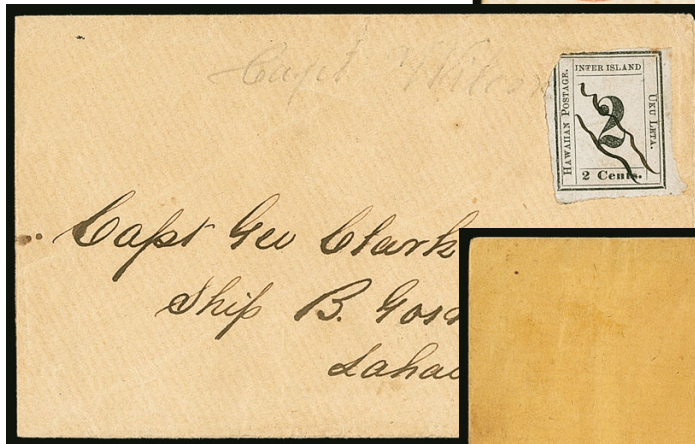 Capt Wilson
INTER ISLAND
HAWAIIAN POSTAGE.
2
UKU LETA.
2 Cents.
Capt Geo Clark
Ship B. Gosn
Lahai